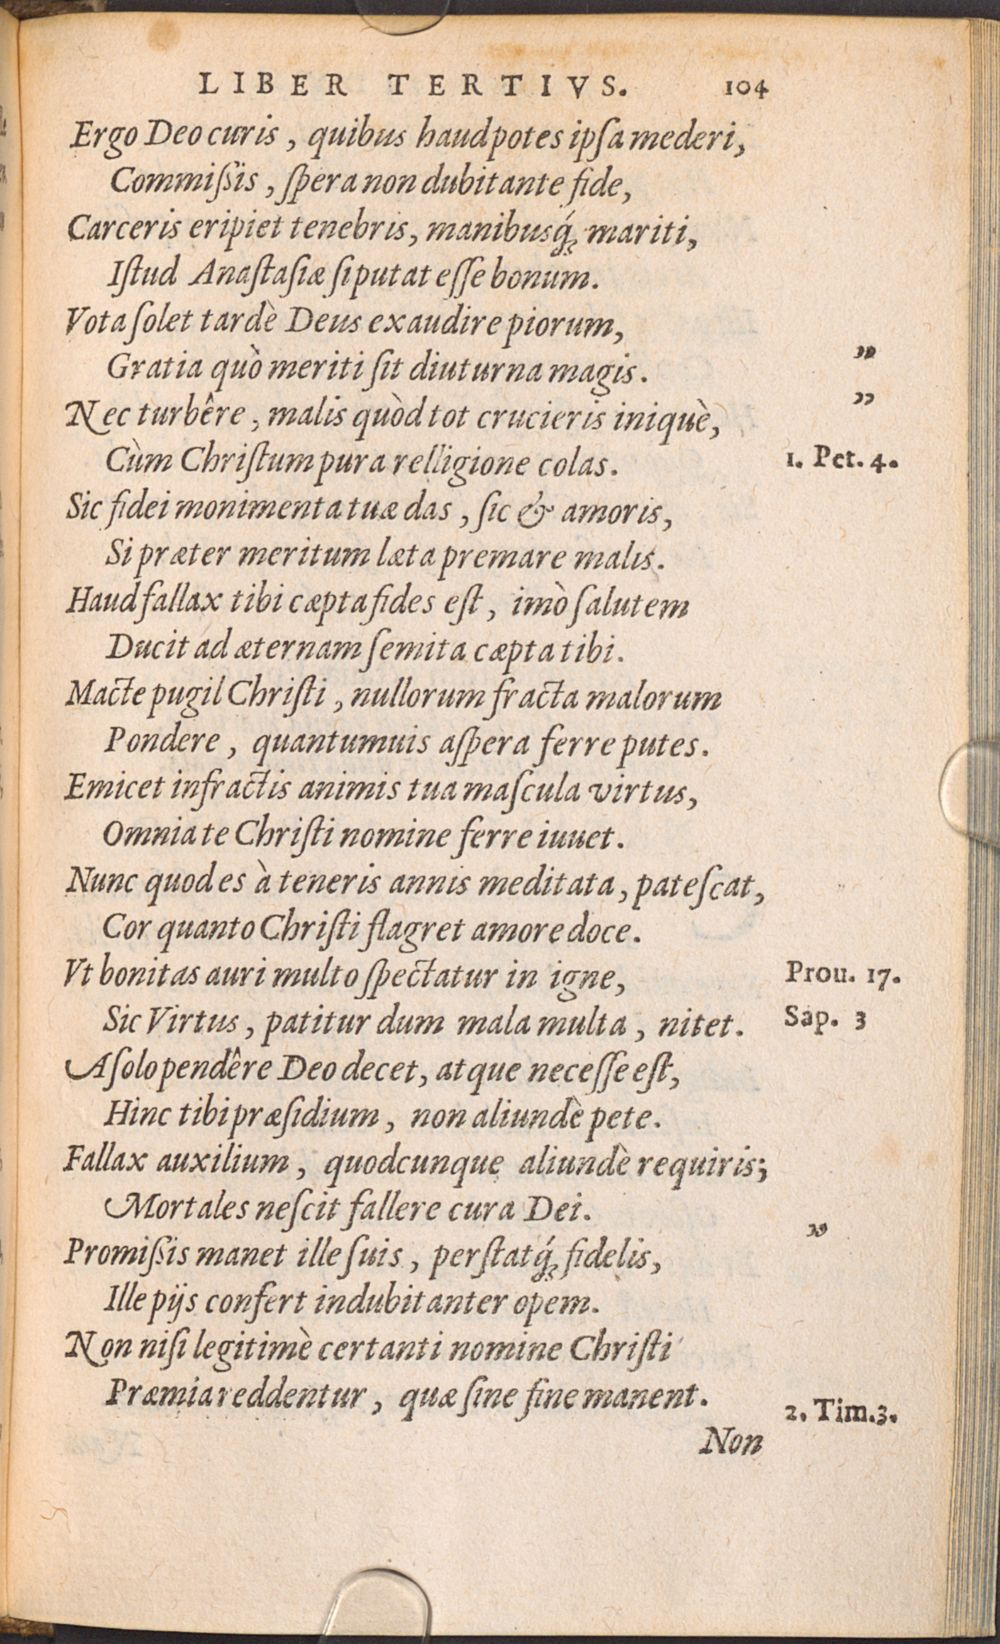 LIBER TERTIVS. 104
Ergo Deo curis, quibus haud potes ipſa mederi,
Commißis, ſpera non dubitante fide,
Carceris eripiet tenebris, manibusq́; mariti,
Iſtud Anaſtaſiæ ſi putat eſſe bonum.
Vota ſolet tardè Deus exaudire piorum,
Gratia quò meriti ſit diuturna magis. "
Nec turbêre, malis quòd tot crucieris iniquè, "
Cùm Chriſtum pura relligione colas. 1. Pet. 4.
Sic fidei monimenta tuæ das, ſic & amoris,
Si præter meritum læta premare malis.
Haud fallax tibi cæpta fides eſt, imò ſalutem
Ducit ad æternam ſemita cæpta tibi.
Macte pugil Chriſti, nullorum fracta malorum
Pondere, quantumuis aſpera ferre putes.
Emicet infractis animis tua maſcula virtus,
Omnia te Chriſti nomine ferre iuuet.
Nunc quod es à teneris annis meditata, pateſcat,
Cor quanto Chriſti flagret amore doce.
Vt bonitas auri multo ſpectatur in igne, Prou. 17.
Sic Virtus, patitur dum mala multa, nitet. Sap. 3
A ſolo pendêre Deo decet, atque neceſſe eſt,
Hinc tibi præſidium, non aliundè pete.
Fallax auxilium, quodcunque aliundè requiris;
Mortales neſcit fallere cura Dei. "
Promißis manet ille ſuis, perſtatq́; fidelis,
Ille pijs confert indubitanter opem.
Non niſi legitimè certanti nomine Chriſti
Præmia reddentur, quæ ſine fine manent. 2. Tim. 3.
Non